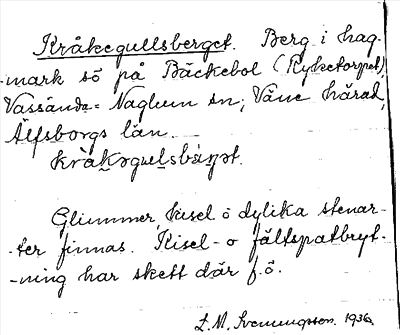 Kråkegullsberget. Berg i hag-
-mark sö på Bäckebol (Ryketorpet)
Vassända-Naglum sn; Väne härad,
Älfsborgs län.
Glimmer kisel o dylika stenar-
-ter finnas. Kisel- o fältspatbryt-
-ning har skett där f. ö.
L. M. Svenungsson. 1936.